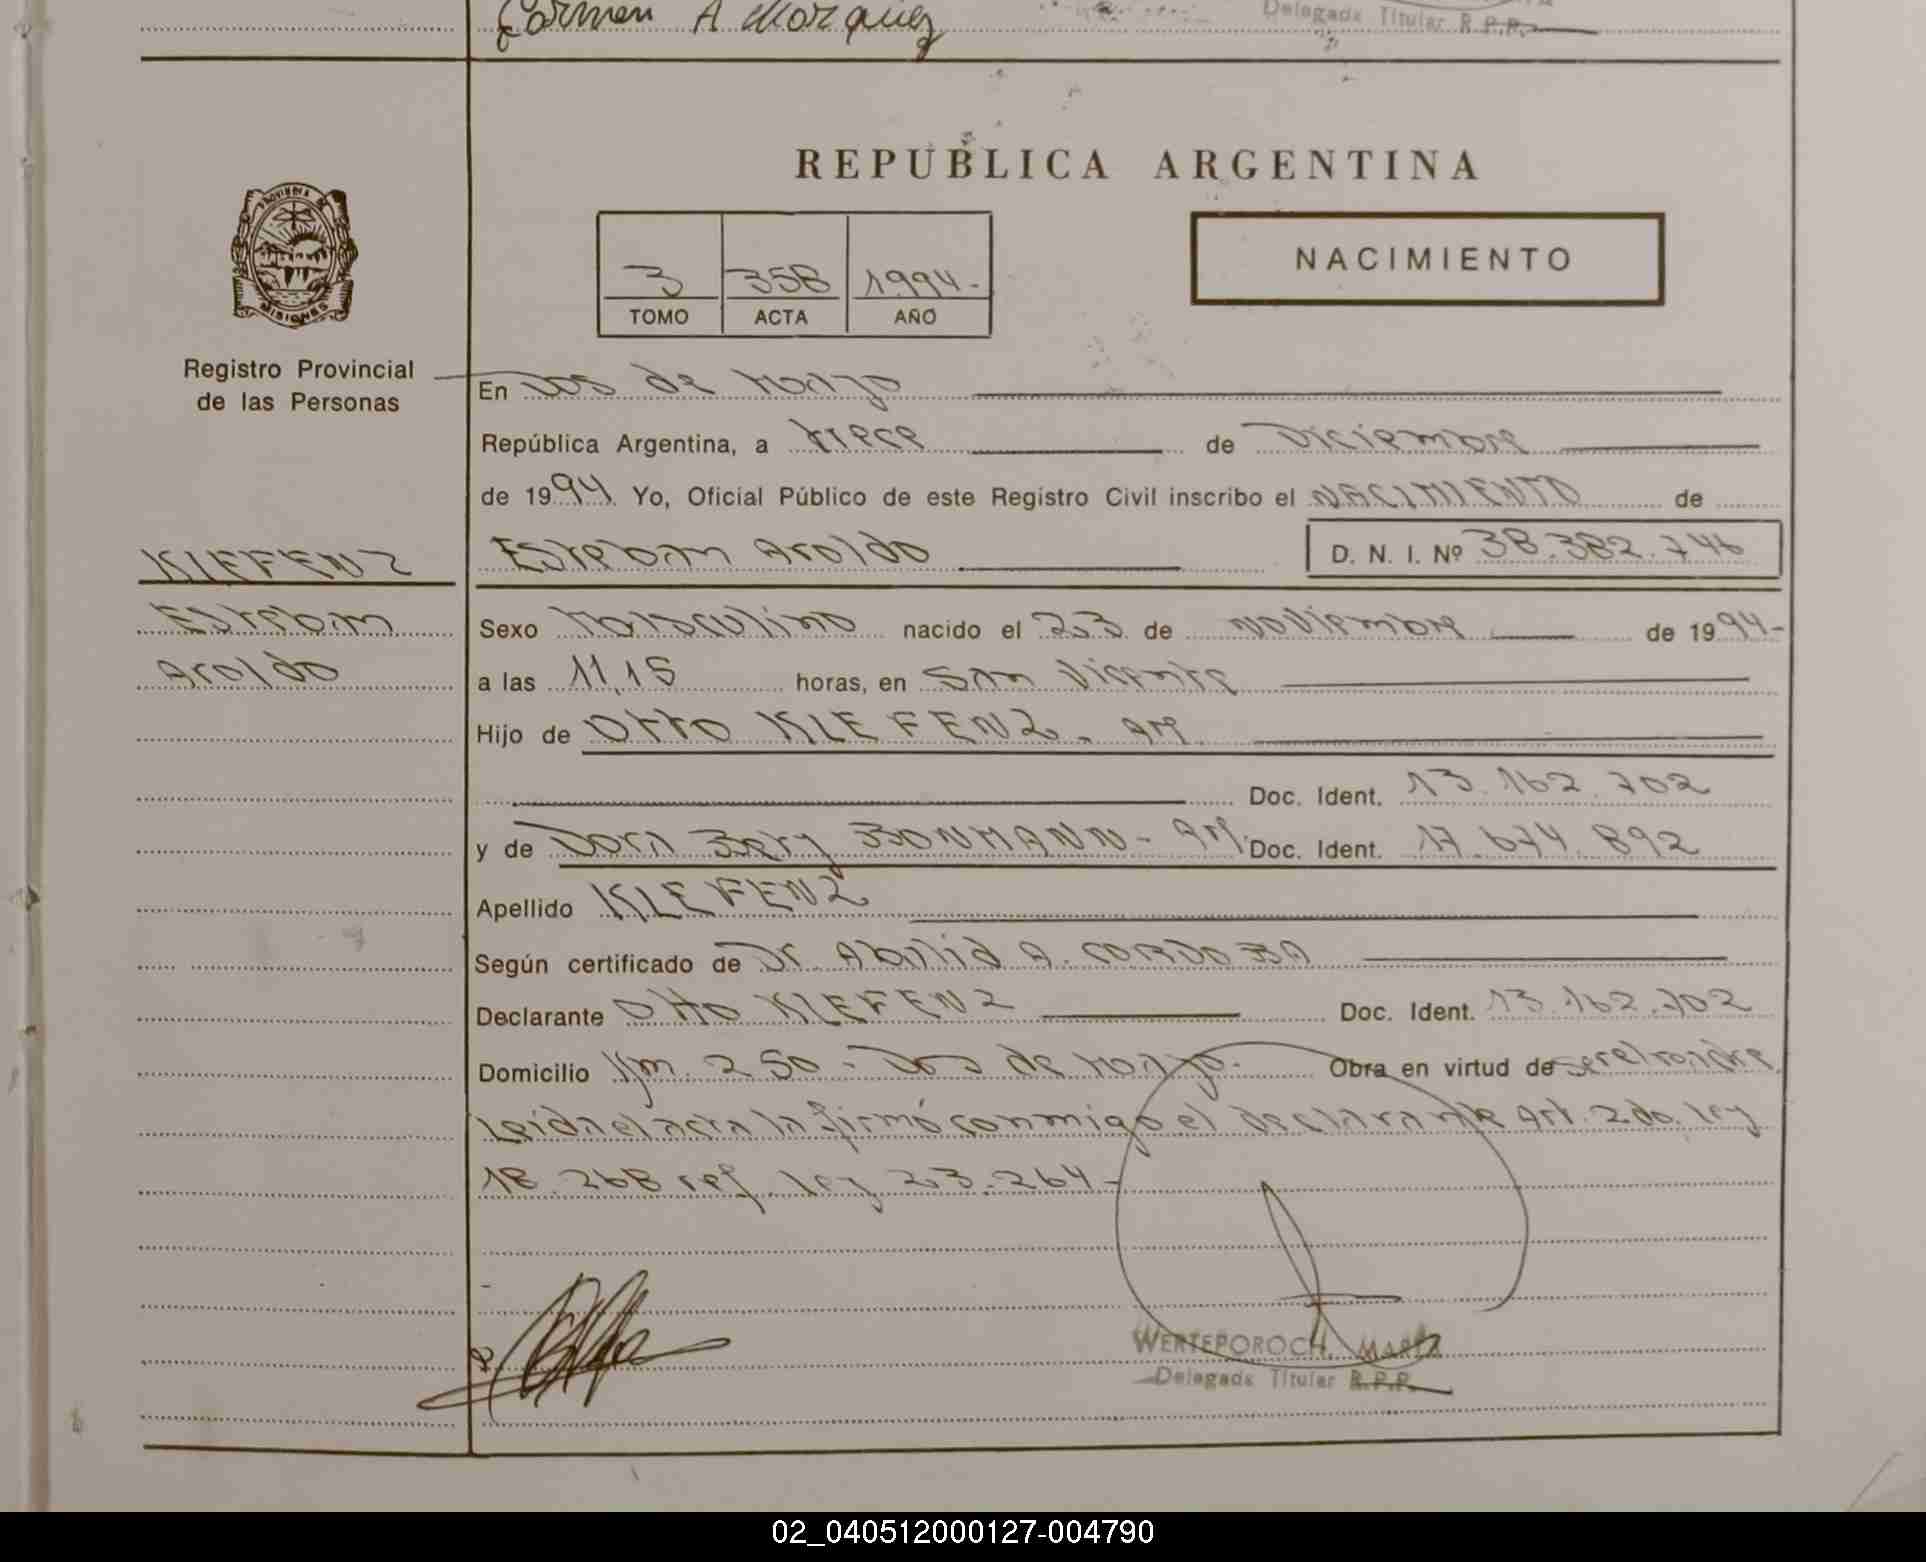 Carmen A Marquez
Delegada Titular R.P.P.
REPUBLICA ARGENTINA
PROVINCIA DE
MISIONES
NACIMIENTO
3 358 1994-
TOMO ACTA AÑO
Registro Provincial
de las Personas
En Dos de Mayo
República Argentina, a trece de Diciembre
de 1994 Yo, Oficial Público de este Registro Civil inscribo el NACIMIENTO de
KLEFENZ
Esteban Aroldo D. N. I. Nº 38.382.746
Esteban
Aroldo
Sexo Masculino nacido el 23 de Noviembre de 1994-
a las 11,15 horas, en San Vicente
Hijo de Otto KLEFENZ. Ar.
Doc. Ident. 13.162.702
y de Dora Bety BONMANN - Ar. Doc. Ident. 17.674.892
Apellido KLEFENZ
Según certificado de Dr. A. CORDOBA
Declarante Otto KLEFENZ Doc. Ident. 13.162.702
Domicilio Km. 250 - Dos de Mayo. Obra en virtud de ser el padre
Leida el acta la firmó conmigo el declarante Art. 2do. ley
18.268 ref. ley 23.264-
WERTEPOROCH, MARIA
Delegada Titular R.P.P.
02_040512000127-004790